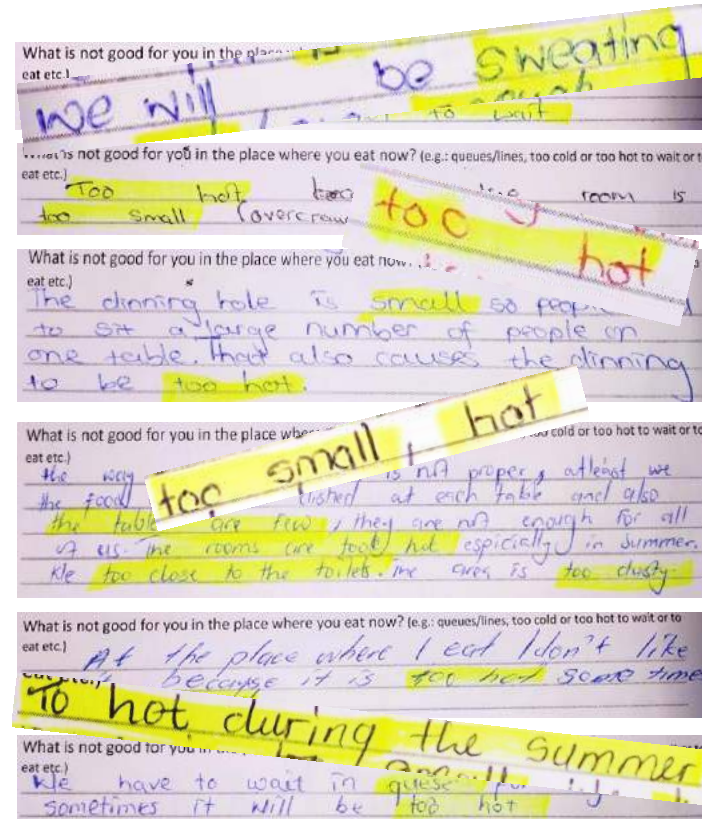 What is not good for you in the place
eat etc.)
we will be sweating
to wait
is not good for you in the place where you eat now? (e.g.: queues/lines, too cold or too hot to wait or t
eat etc.)
Too hot room is
too small (overcrow
too hot
What is not good for you in the place where you eat now.
eat etc.)
The dinning hole is small so
to sit a large number of people on
one table. That also causes the dinning
to be too hot.
What is not good for you in the place cold or too hot to wait or to
eat etc.)
too small, hot
the way is not proper, atleast we
the food at each table and also
the table are few, they are not enough for all
of us. The rooms are too hot espicially in summer.
We too close to the toilets. The area is too dusty
What is not good for you in the place where you eat now? (e.g.: queues/lines, too cold or too hot to wait or to
eat etc.)
At the place where I eat I don't like
because it is too hot some time
To hot during the summer
What is not good for you
eat etc.)
We have to wait in quese
sometimes it will be too hot